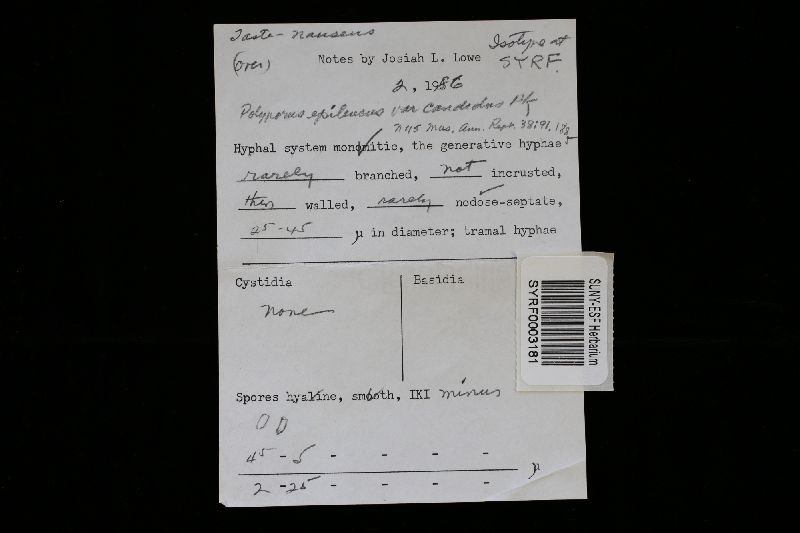 Taste - nauseus
(over)
Isotype at
SYRF.
Notes by Josiah L. Lowe
2, 1986
Polyporus epileucus var candidus Pk
N Y S Mus. Ann. Rept. 38:91. 1885
Hyphal system monomitic, the generative hyphae
rarely branched, not incrusted,
thin walled, rarely nodose-septate,
25-45 µ in diameter; tramal hyphae
Cystidia
none
Basidia
Spores hyaline, smooth, IKI minus
45 - 5 - - - -
µ
2 - 25 - - - -
SUNY-ESF Herbarium
SYRF0003181